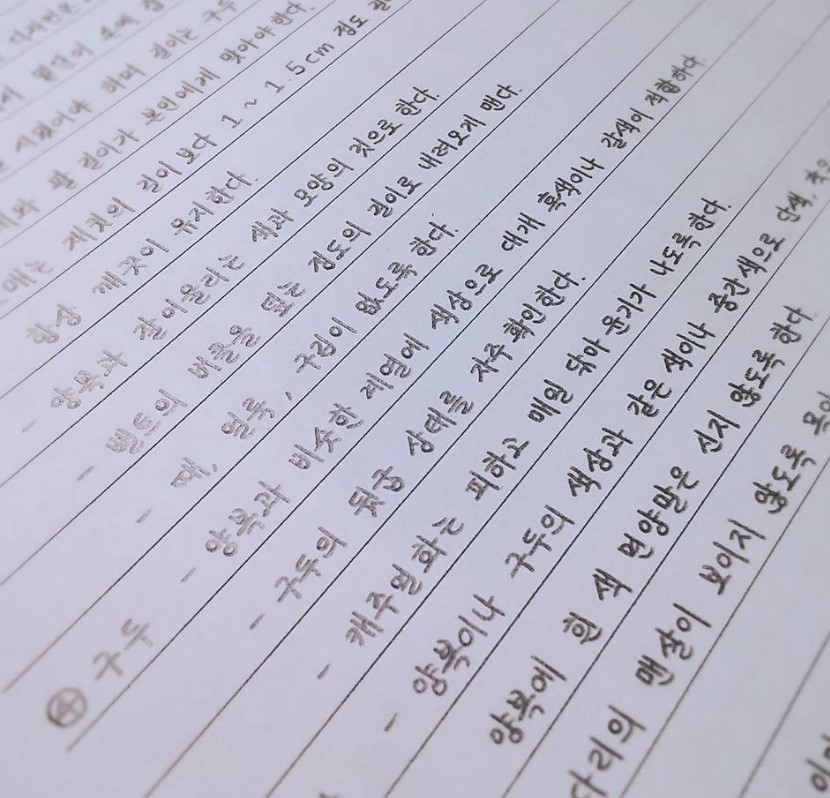 하며 길이는 구두
팔 길이가 본인에게 맞아야 한다.
재킷의 길이 보다 1 ~ 1.5cm 정도
항상 깨끗이 유지한다.
- 양복과 잘 어울리는 색과 모양의 것으로 한다.
- 벨트의 버클을 덮는 정도의 길이로 내려오게 맨다.
- 때, 얼룩, 구김이 없도록 한다.
④ 구두
- 양복과 비슷한 계열에 색상으로 대개 흑색이나 갈색이 적합하다.
- 구두의 뒷굽 상태를 자주 확인한다.
- 캐주얼화는 피하고 매일 닦아 윤기가 나도록한다.
- 양복이나 구두의 색상과 같은 색이나 중간색으로 단색,
양복에 흰 색 면양말은 신지 않도록 한다.
다리의 맨살이 보이지 않도록